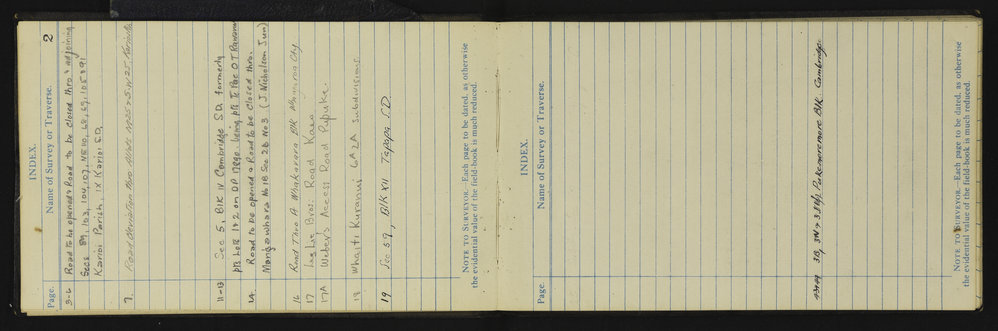 INDEX.
Page. Name of Survey or Traverse. 2
3-6 Road to be opened & Road to be closed thro' & adjoining
Secs 89, 103, 104, 107, NE 110, 68, 69, 105 & 91
Karioi Parish, IX Karioi S.D.
7. Road Deviation thro Allots M25 & S.W 25, Karioi
11-13 Sec 5, Blk IV Cambridge S.D. formerly
pts Lots 1 & 2 on D.P. being pts Te Pae O T
14 Road to be opened & Road to be closed thro.
Mangawhara No 1B Sec 2B No 3 (J. Nicholson Jun)
16 Road Thro A Whakarara Blk
17 Lee Bros: Road
17A Weber's Access Road Papuke.
18 Whaiti Kuranui 6A2A Subdivisions
19 Sec 59, Blk XII Tapapa S.D.
NOTE TO SURVEYOR.—Each page to be dated, as otherwise
the evidential value of the field-book is much reduced.
INDEX.
Page. Name of Survey or Traverse.
3B, 3N & 3 Pukemoremore Blk. Cambridge
NOTE TO SURVEYOR.—Each page to be dated, as otherwise
the evidential value of the field-book is much reduced.